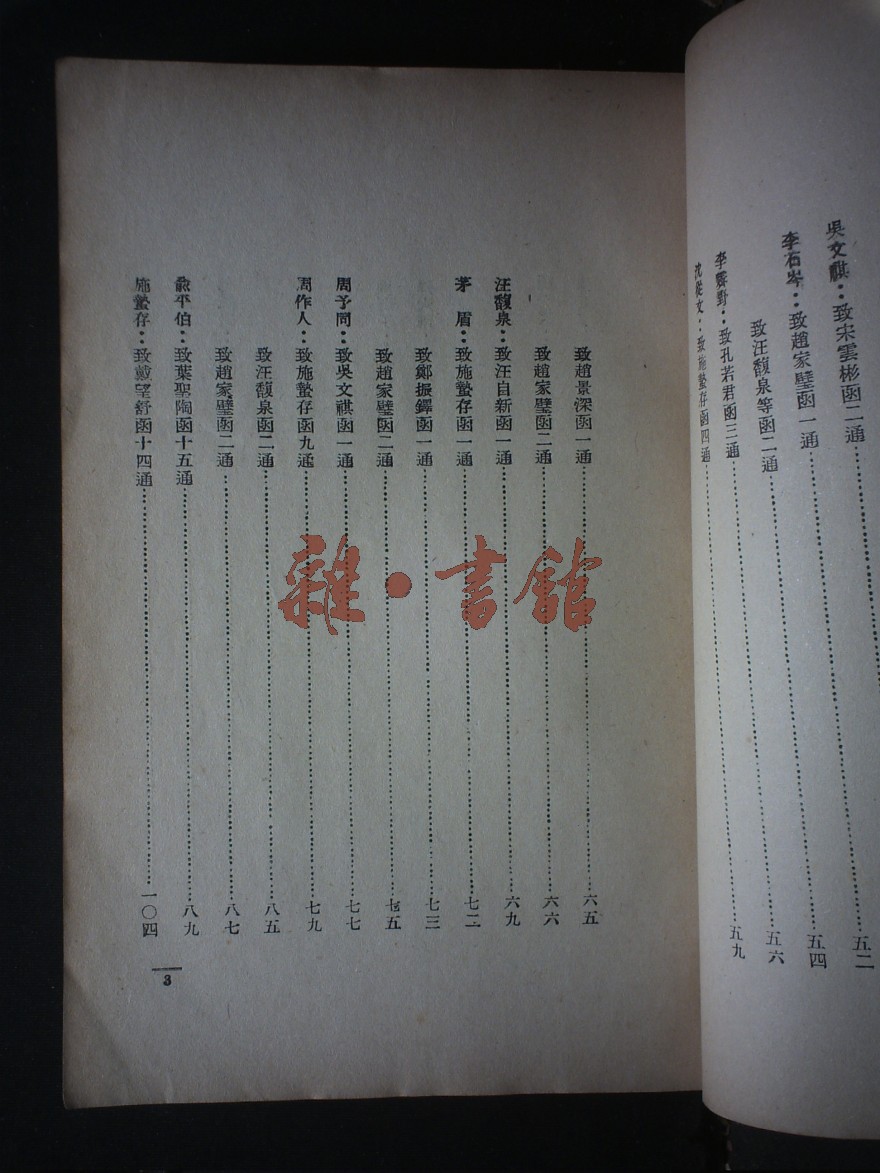 吳文祺：致宋雲彬函二通……五二
李石岑：致趙家璧函一通……五四
致汪馥泉等函二通……五六
李霽野：致孔若君函三通……五九
沈從文：致施蟄存函四通……
致趙景深函一通……六五
致趙家璧函二通……六六
汪馥泉：致汪自新函一通……六九
茅　盾：致施蟄存函一通……七二
致鄭振鐸函一通……七三
致趙家璧函二通……七五
周予同：致吳文祺函一通……七七
周作人：致施蟄存函九通……七九
致汪馥泉函二通……八五
致趙家璧函二通……八七
俞平伯：致葉聖陶函十五通……八九
施蟄存：致戴望舒函十四通……一〇四
3
雜·書館